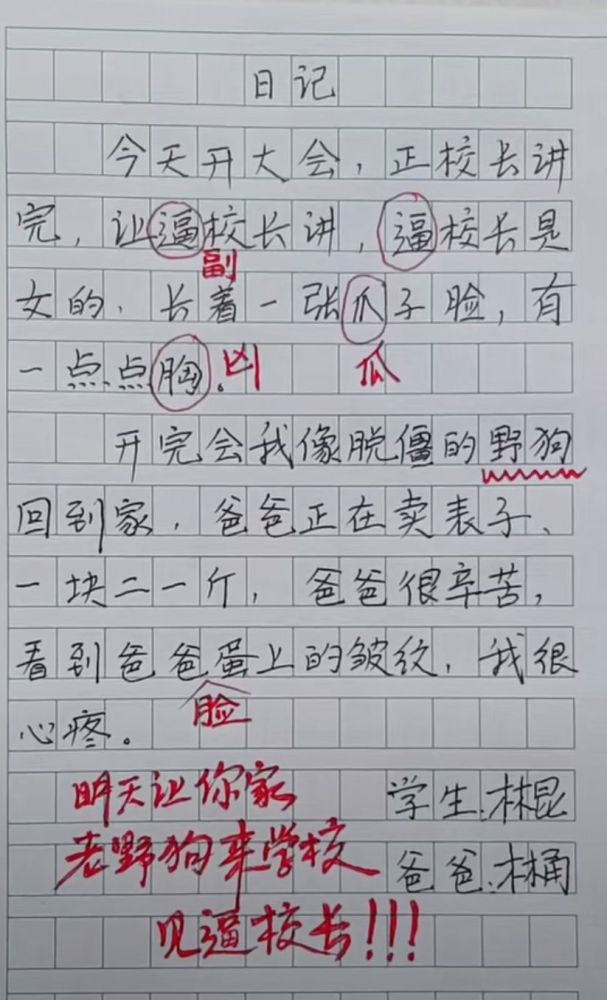 日记
今天开大会，正校长讲
完，让逼校长讲，逼校长是
副
女的，长着一张爪子脸，有
一点点胸。凶 瓜
开完会我像脱僵的野狗
回到家，爸爸正在卖表子、
一块二一斤，爸爸很辛苦，
看到爸爸蛋上的皱纹，我很
脸
心疼。
明天让你家
学生：林棍
老野狗来学校
爸爸：林桶
见逼校长！！！